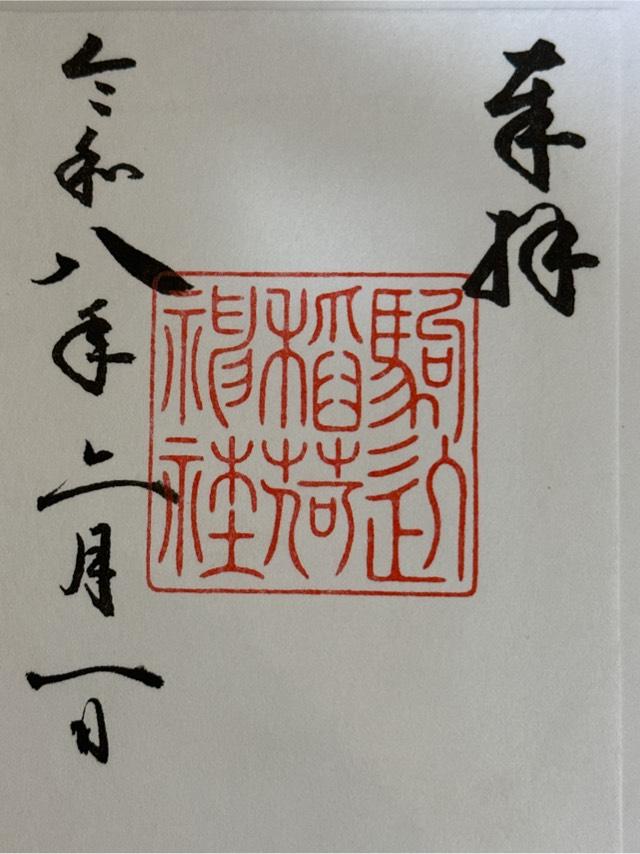 奉拝
駒込
稲荷
神社
令和八年二月一日